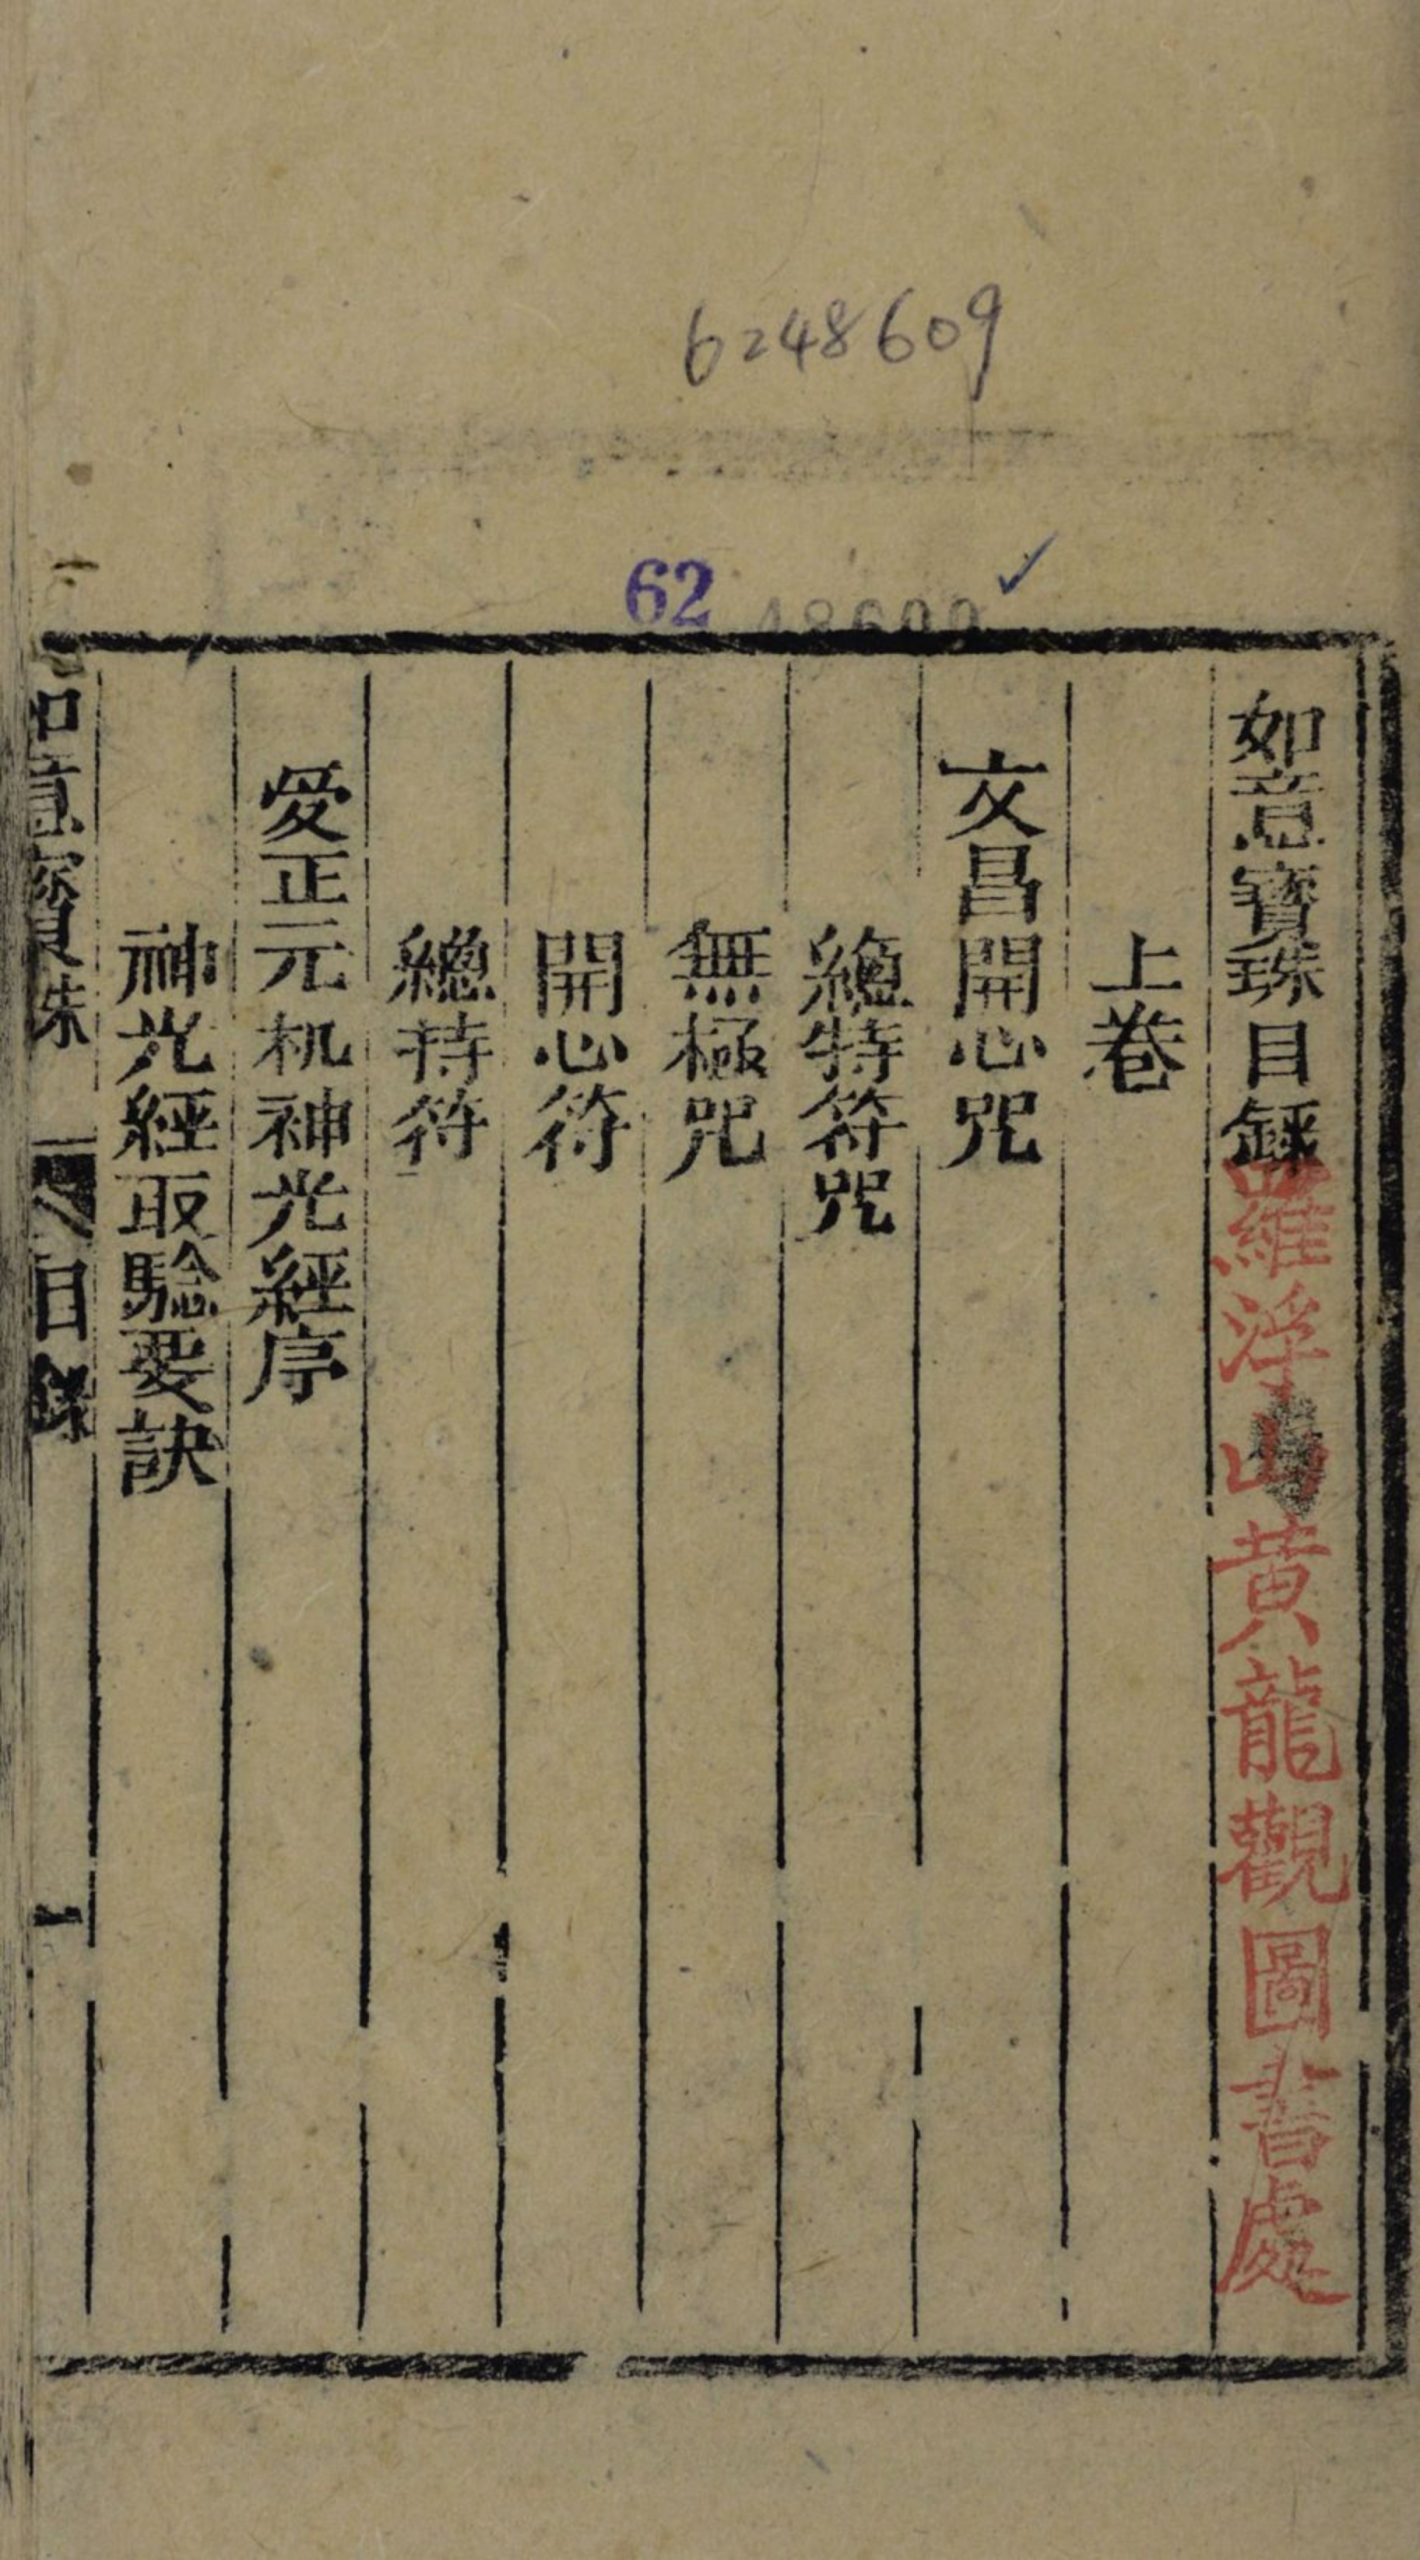 6248609
62 48609
如意寶珠目錄
羅浮山黃龍觀圖書處
上卷
文昌開心咒
總特符咒
無極咒
開心符
總持符
爱正元机神光經序
神光經取騐要訣
如意寶珠 目錄 一